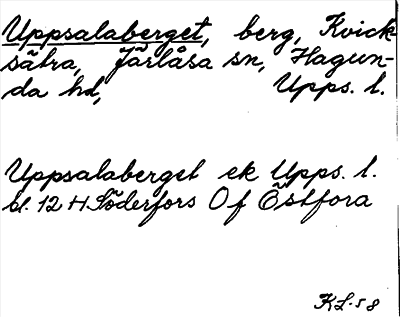 Uppsalaberget, berg, Kvick-
sätra, Järlåsa sn, Hagun-
da hd, Upps. l.
Uppsalaberget ek Upps. l.
bl. 12 H Söderfors Of Östfora
KL-58